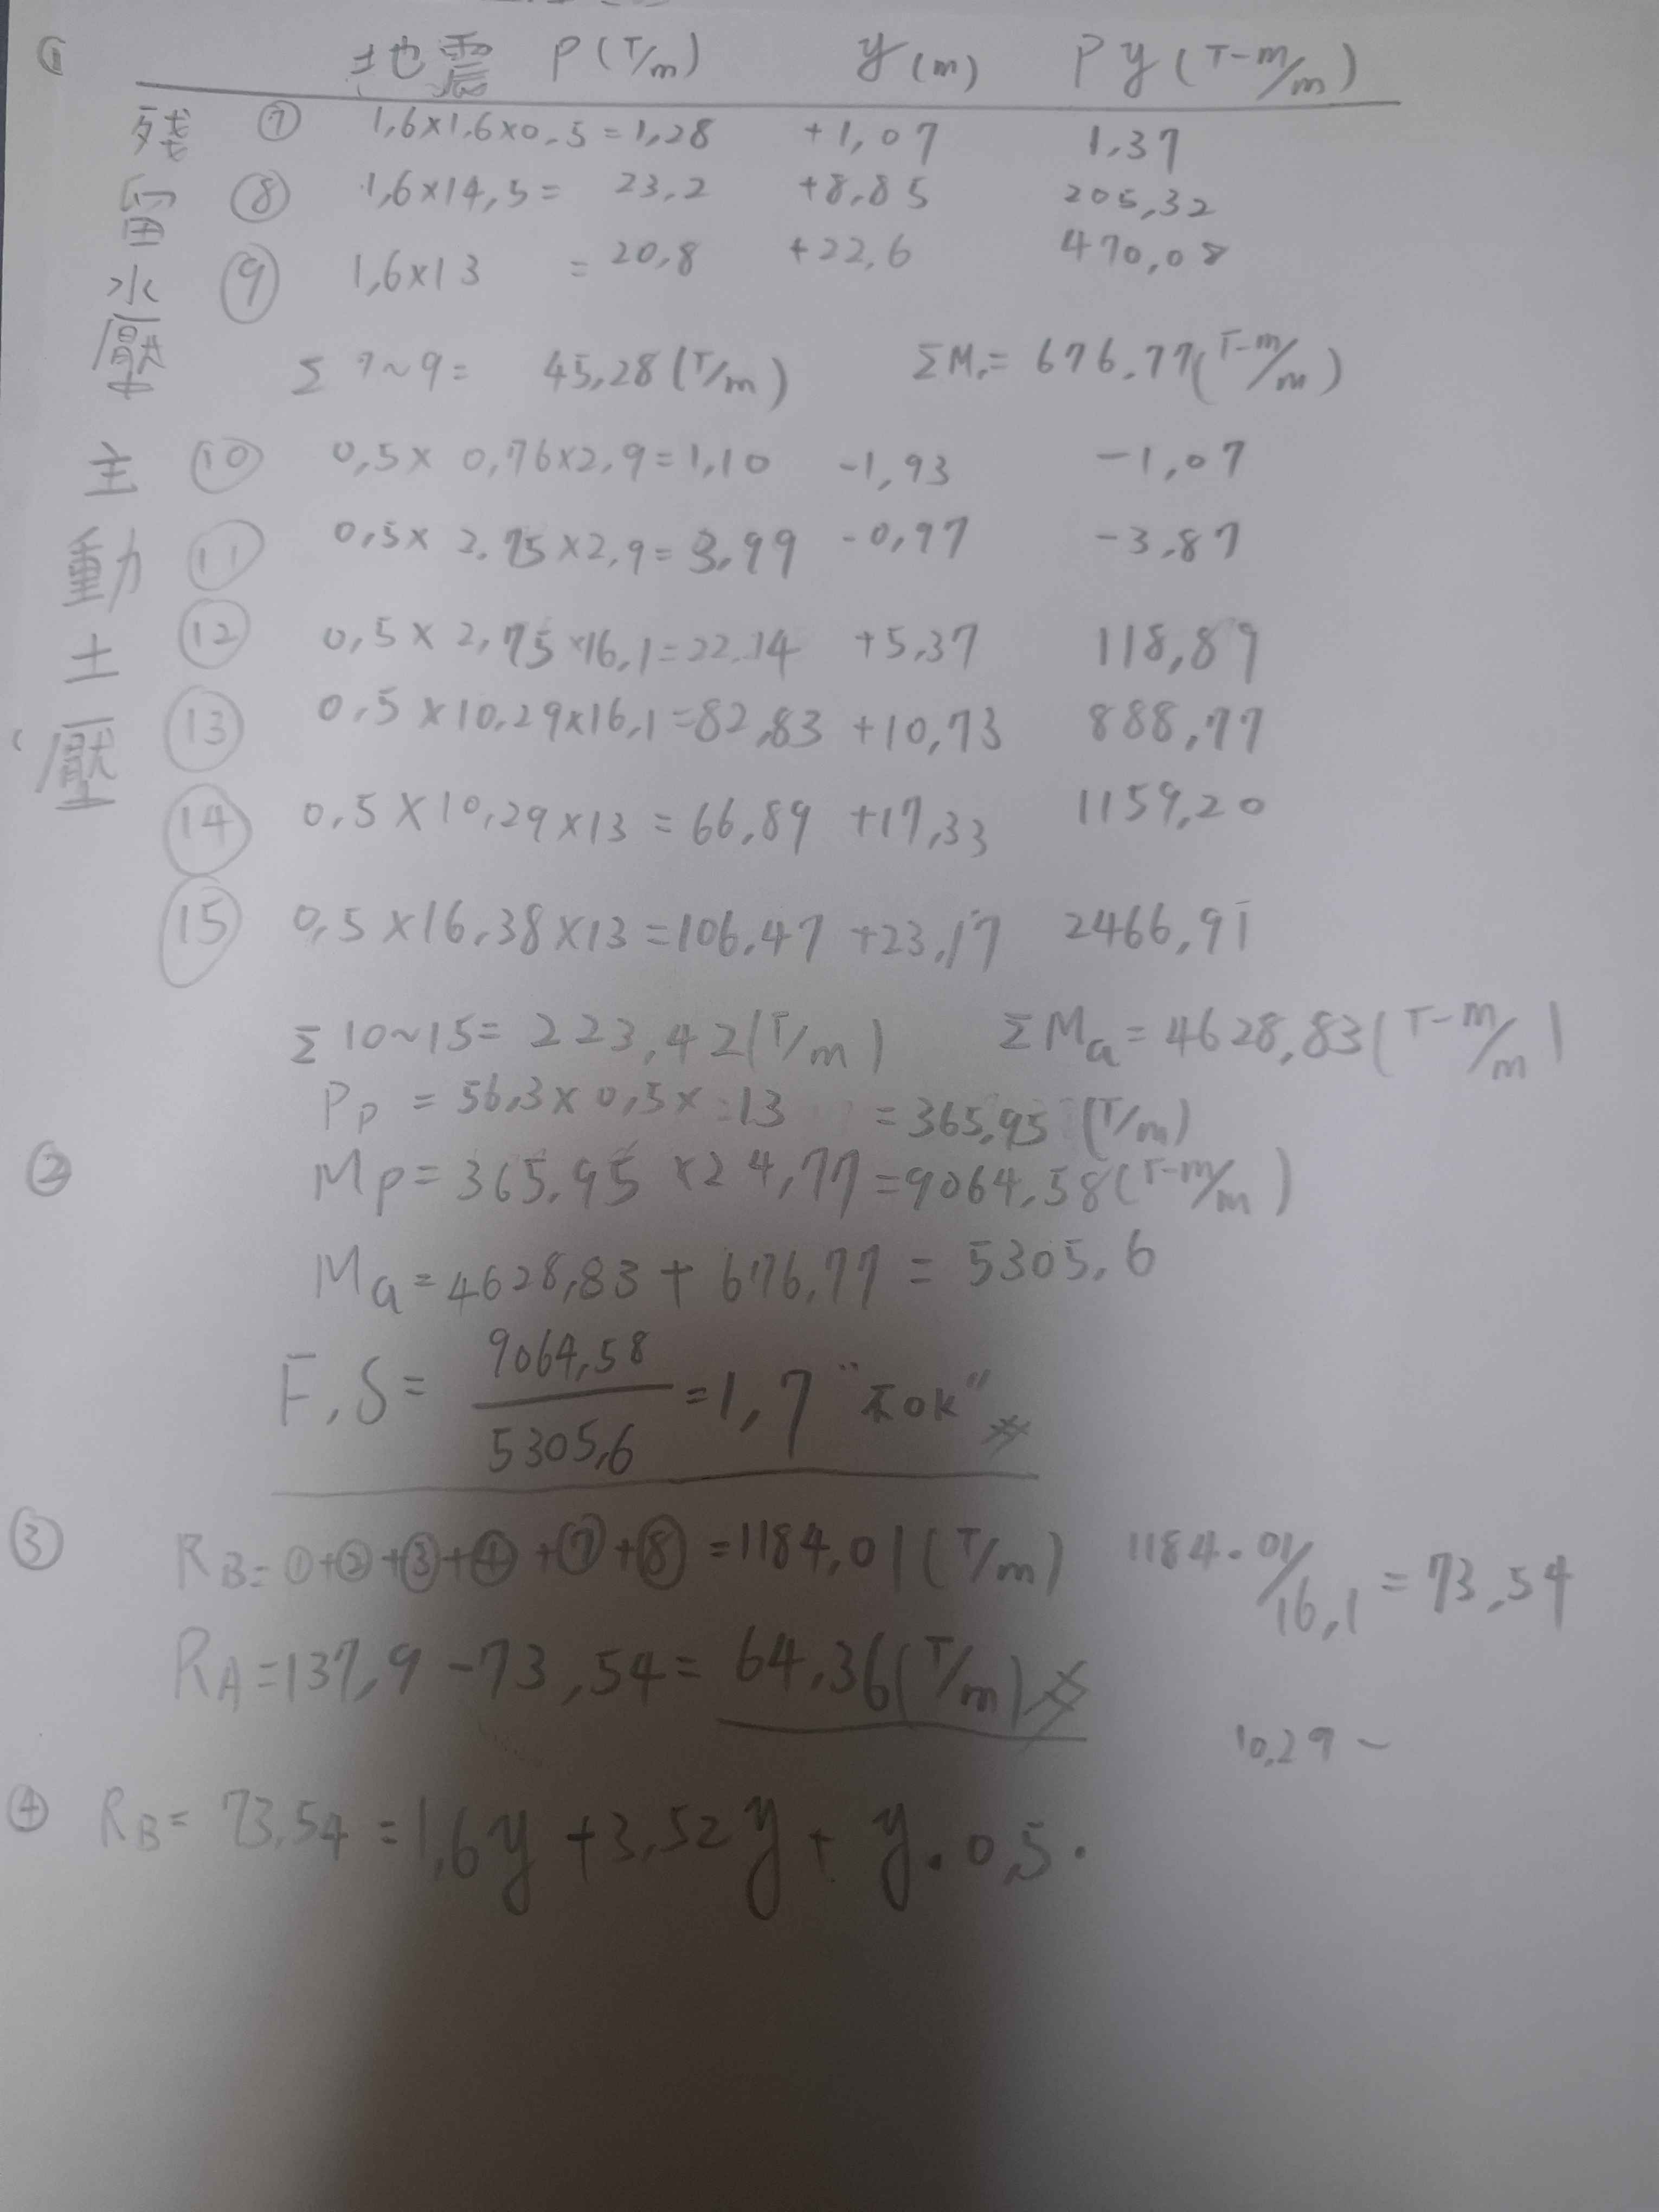 ① 地震 P(T/m) y(m) Py(T-m/m)
殘留水壓
⑦ 1,6×1,6×0,5=1,28 +1,07 1,37
⑧ 1,6×14,5= 23,2 +8,85 205,32
⑨ 1,6×13 = 20,8 +22,6 470,08
Σ 7~9= 45,28(T/m) ΣM,= 676,77(T-m/m)
主動土壓
⑩ 0,5× 0,76×2,9=1,10 -1,93 -1,07
⑪ 0,5× 2.75×2,9=3,99 -0,97 -3,87
⑫ 0,5×2,75×16,1=22.14 +5,37 118,89
⑬ 0,5×10,29×16,1=82,83 +10,73 888,77
⑭ 0,5×10,29×13=66,89 +17,33 1159,20
⑮ 0,5×16,38×13=106,47 +23,17 2466,91
Σ10~15= 223,42(T/m) ΣMa=4628,83(T-m/m)
Pp = 56,3×0,5×13 =365,95 (T/m)
② Mp=365,95×24,77=9064,58(T-m/m)
Ma=4628,83+676,77= 5305,6
F,S= 9064,58/5305,6 =1,7 "不OK"
③ RB=①+②+③+④+⑦+⑧=1184,01(T/m) 1184.01/16,1=73,54
RA=137,9-73,54=64,36(T/m)
10,29-
④ RB= 73,54=1,6y+3,52y+y.0,5.